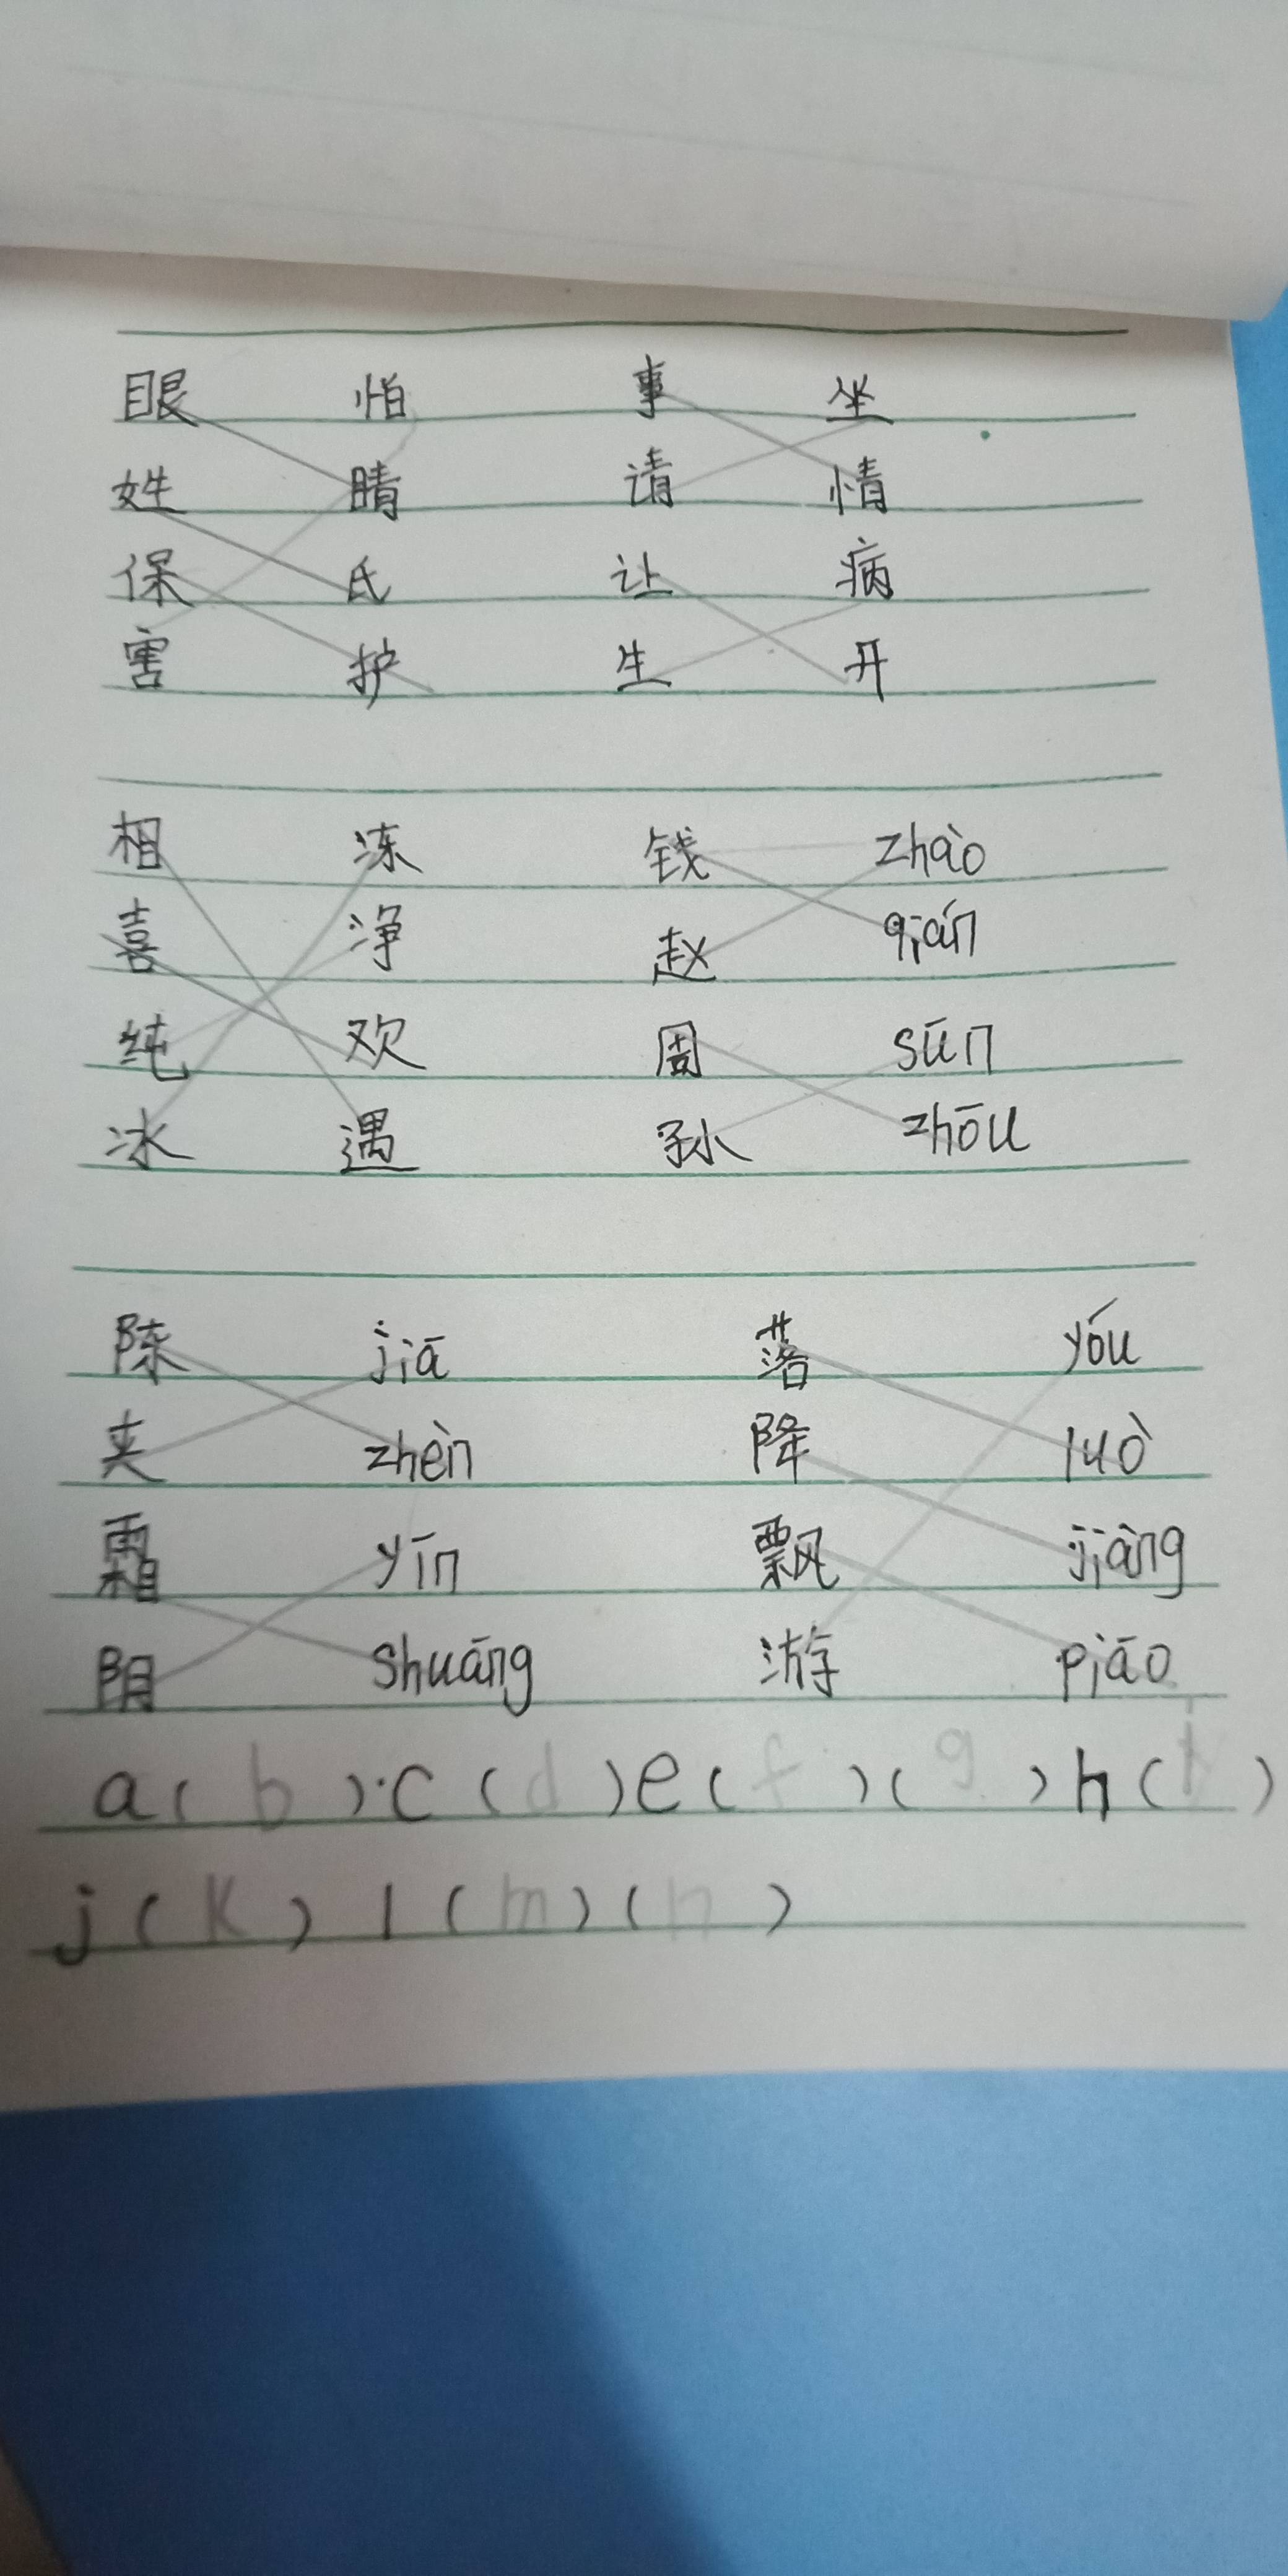 眼 怕 事 坐
姓 睛 请 情
保 氏 让 病
害 护 生 开
相 冻 钱 zhào
喜 净 赵 qián
纯 欢 周 sūn
冰 遇 孙 zhōu
陈 jiā 落 yóu
夹 zhèn 降 luò
霜 yīn 飘 jiàng
阴 shuāng 游 piāo
a ( b ) c ( d ) e ( f ) ( g ) h ( i )
j ( k ) l ( m ) ( n )